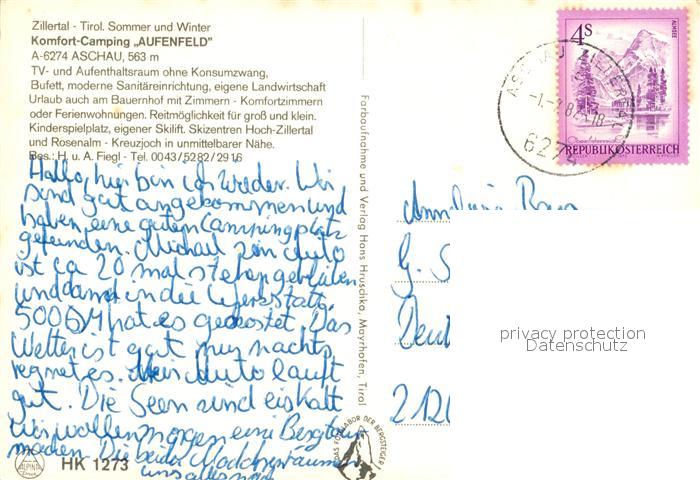 Zillertal - Tirol. Sommer und Winter
Komfort-Camping „AUFENFELD"
A-6274 ASCHAU, 563 m
TV- und Aufenthaltsraum ohne Konsumzwang,
Bufett, moderne Sanitäreinrichtung, eigene Landwirtschaft
Urlaub auch am Bauernhof mit Zimmern - Komfortzimmern
oder Ferienwohnungen. Reitmöglichkeit für groß und klein.
Kinderspielplatz, eigener Skilift. Skizentren Hoch-Zillertal
und Rosenalm - Kreuzjoch in unmittelbarer Nähe.
Bes.: H. u. A. Fiegl - Tel. 0043/5282/2916
Hallo, hier bin ich wieder. Wir
sind gut angekommen und
haben eine guten Campingplatz
gefunden. Michael sein Auto
ist ca 20 mal stehen geblieben
und damit in die Werkstatt.
500 DM hat es gekostet. Das
Wetter ist gut nur nachts
regnet es. Mein Auto läuft
gut. Die Seen sind eiskalt
Wir wollen morgen eine Bergtour
machen. Die beiden Mädchen räumen
uns alles
HK 1273
ALPINA
Druck
Farbaufnahme und Verlag Hans Hruschka, Mayrhofen, Tirol
DAS FOTOLABOR DER BERGSTEIGER
4 S
ALMSEE
REPUBLIK ÖSTERREICH
ASCHAU ZILLERTAL
6274
G. S
Deut
212
privacy protection
Datenschutz